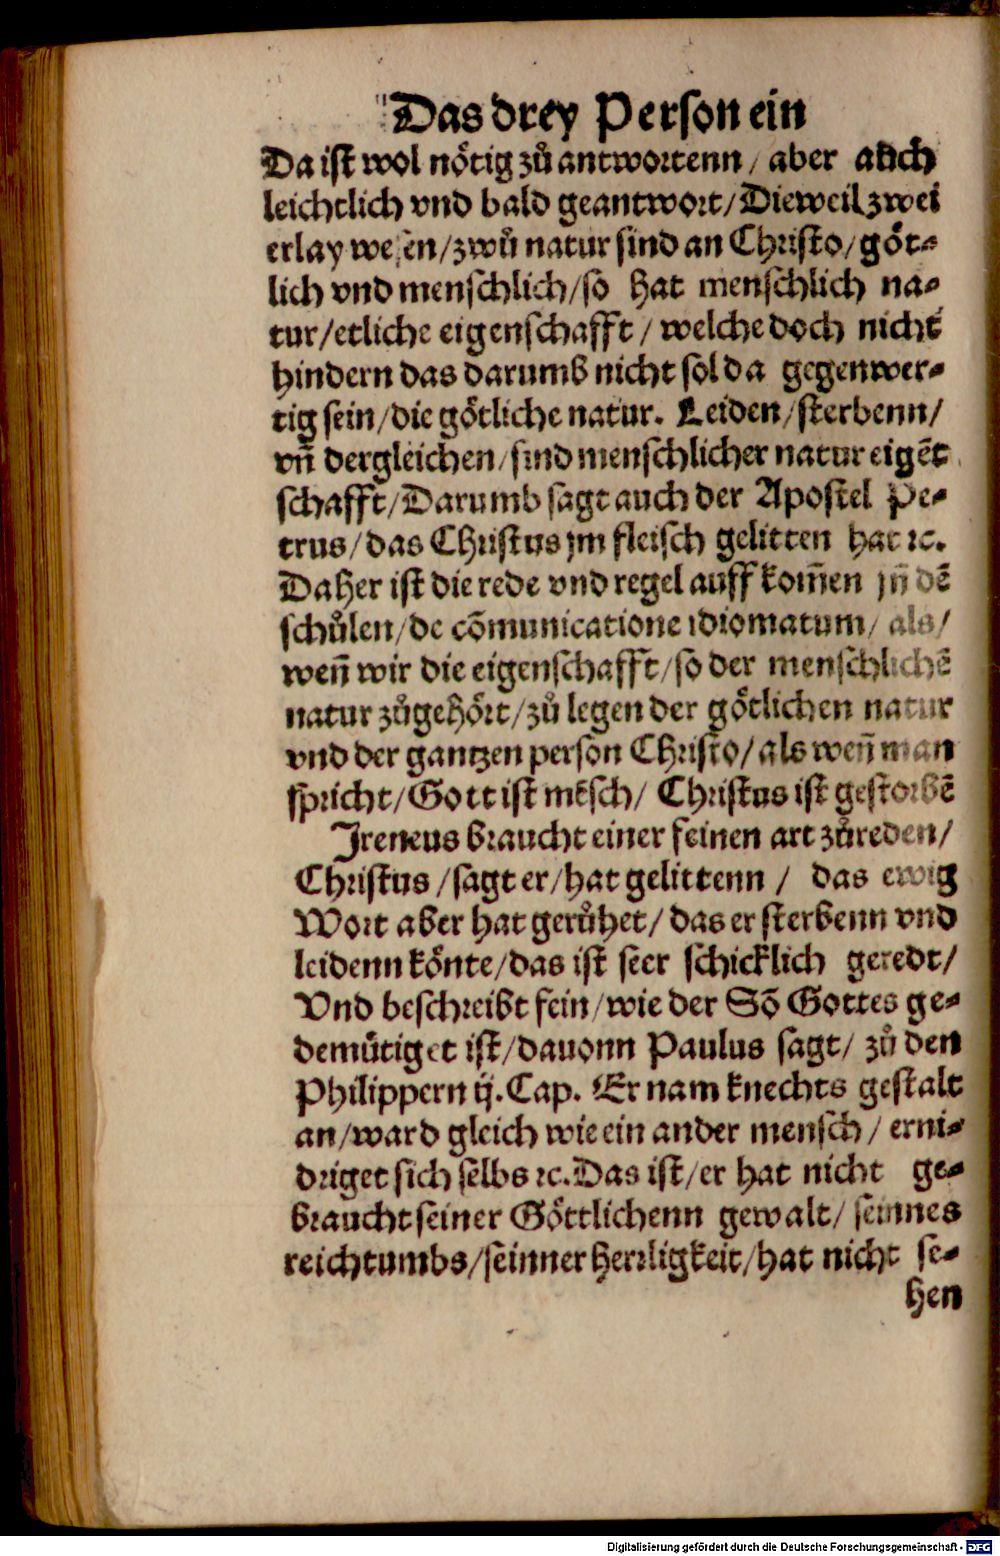 Das drey Person ein
Da ist wol nötig zů antwortenn / aber auch
leichtlich vnd bald geantwort / Dieweil zwei
erlay wesen / zwů natur sind an Christo / göt⸗
lich vnd menschlich / so hat menschlich na⸗
tur / etliche eigenschafft / welche doch nicht
hindern das darumb nicht sol da gegenwer⸗
tig sein / die götliche natur. Leiden / sterbenn /
vn̄ dergleichen / sind menschlicher natur eigēt
schafft / Darumb sagt auch der Apostel Pe⸗
trus / das Christus jm fleisch gelitten hat ꝛc.
Daher ist die rede vnd regel auff kom̄en jn̄ dē
schůlen / de cōmunicatione idiomatum / als /
wen̄ wir die eigenschafft / so der menschlichē
natur zůgehört / zů legen der götlichen natur
vnd der gantzen person Christo / als wen̄ man
spricht / Gott ist mēsch / Christus ist gestorbē
Ireneus braucht einer feinen art zůreden /
Christus / sagt er / hat gelittenn / das ewig
Wort aber hat gerůhet / das er sterbenn vnd
leidenn könte / das ist seer schicklich geredt /
Vnd beschreibt fein / wie der Sō Gottes ge⸗
demütiget ist / dauonn Paulus sagt / zů den
Philippern ij. Cap. Er nam knechts gestalt
an / ward gleich wie ein ander mensch / erni⸗
driget sich selbs ꝛc. Das ist / er hat nicht ge⸗
braucht seiner Göttlichenn gewalt / seinnes
reichtumbs / seinner herrligkeit / hat nicht se⸗
hen
Digitalisierung gefördert durch die Deutsche Forschungsgemeinschaft - DFG